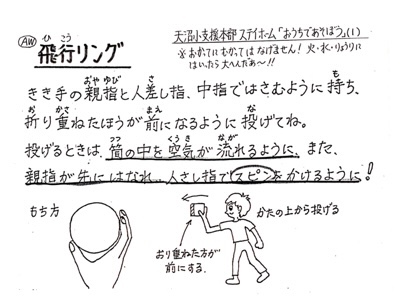 AW
ひこう
飛行リング
天沼小支援本部 ステイホーム「おうちであそぼう」(1)
※おかってにむかってはなげません! 火・水・りょうりに
はいったら大へんだあ〜!!
きき手の親指と人差し指、中指ではさむように持ち、
折り重ねたほうが前になるように投げてね。
投げるときは、筒の中を空気が流れるように、また、
親指が先にはなれ、人さし指でスピンをかけるように!
もち方
おり重ねた方が
前にする.
かたの上から投げる